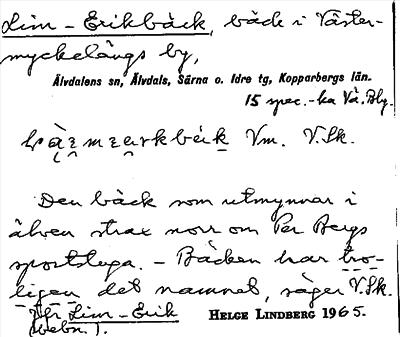 Lim-Erikbäck, bäck i Väster-
myckelängs by,
Älvdalens sn, Älvdals, Särna o. Idre tg, Kopparbergs län.
15 spec.-ka Vä. Bly.
Vm. V.Sk.
Den bäck som utmynnar i
älven strax norr om Per Bergs
sportstuga. – Bäcken har tro-
ligen det namnet, säger V.Sk.
Jfr Lim-Erik
HELGE LINDBERG 1965.
(webn.).